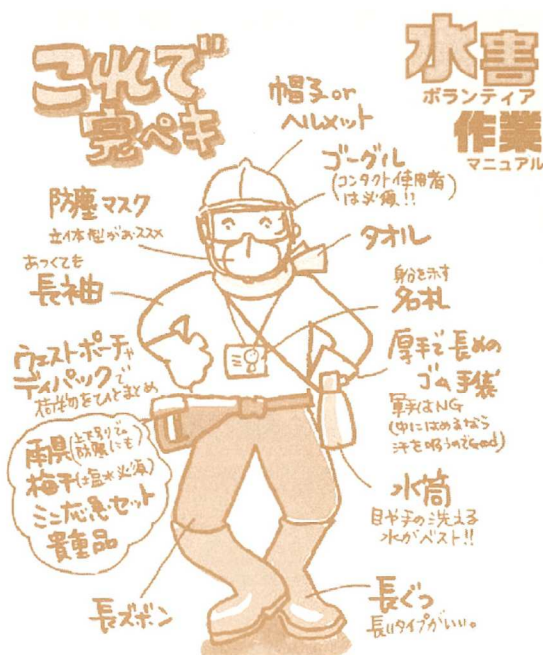 これで
完ペキ
水害
ボランティア
作業
マニュアル
帽子or
ヘルメット
ゴーグル
(コンタクト使用者
は必須!!)
防塵マスク
立体型がおススメ
タオル
あつくても
長袖
身分を示す
名札
ウェストポーチや
ディパックで
荷物をひとまとめ
厚手で長めの
ゴム手袋
軍手はNG
(中にはめるなら
汗を吸うのでGood)
雨具(上下別りで
防寒にも)
梅干(は塩水必須)
ミニ応急セット
貴重品
水筒
目や手の洗える
水がベスト!!
長ズボン
長ぐつ
長いタイプがいい。